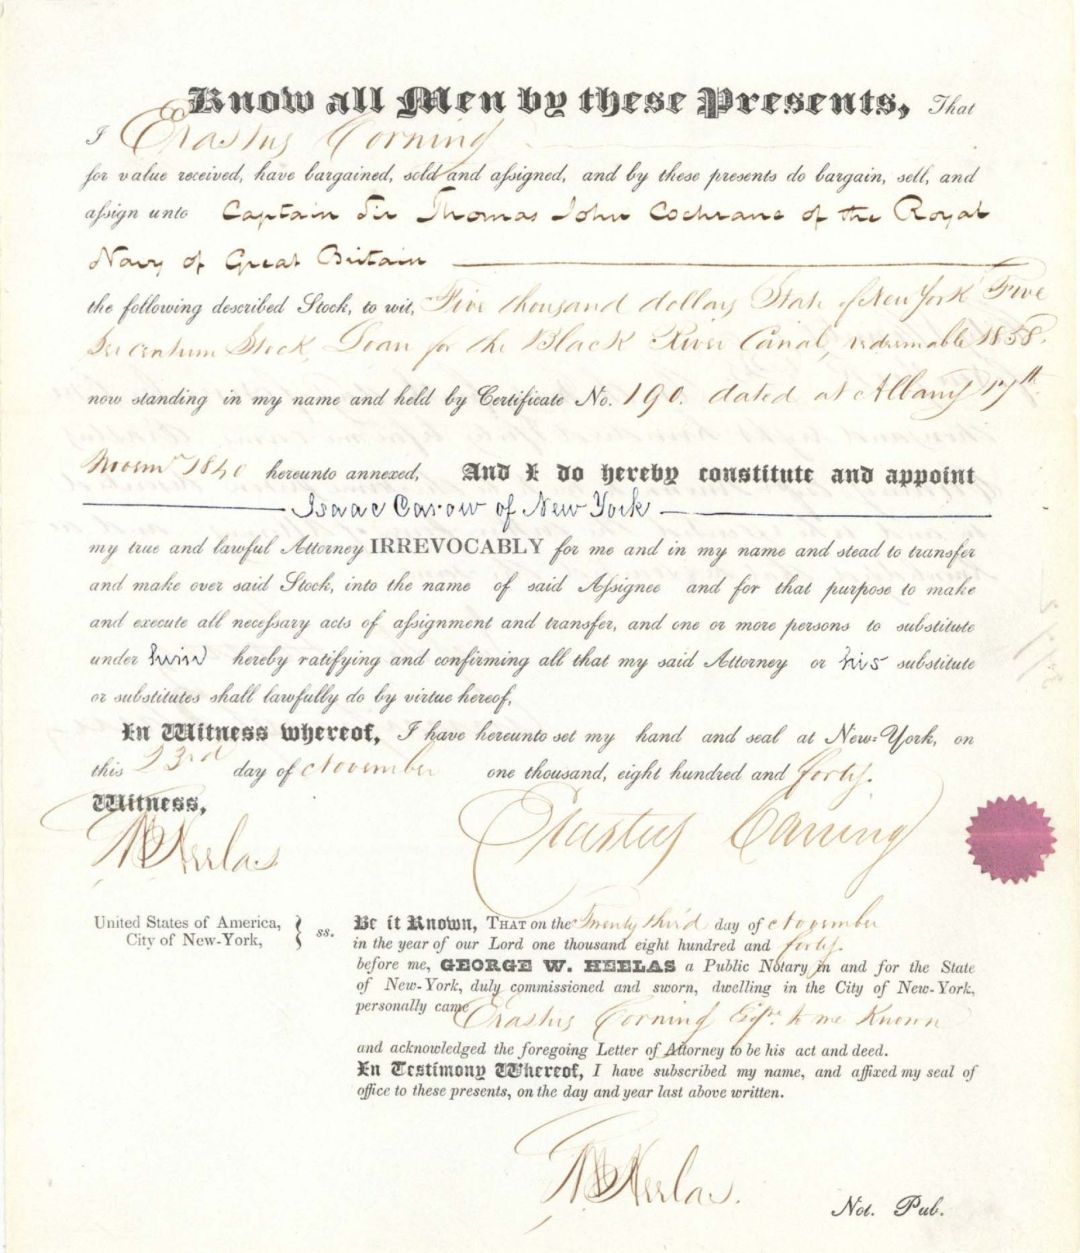 Know all Men by these Presents, That
I Erastus Corning
for value received, have bargained, sold and assigned, and by these presents do bargain, sell, and
assign unto Captain Sir Thomas John Cochrane of the Royal
Navy of Great Britain
the following described Stock, to wit, Five thousand dollars State of New York Five
per centum Stock, Loan for the Black River Canal, redeemable 1858.
now standing in my name and held by Certificate No. 190. dated at Albany 17th
Novemr 1840 hereunto annexed, And I do hereby constitute and appoint
Isaac Carow of New York
my true and lawful Attorney IRREVOCABLY for me and in my name and stead to transfer
and make over said Stock, into the name of said Assignee and for that purpose to make
and execute all necessary acts of assignment and transfer, and one or more persons to substitute
under him hereby ratifying and confirming all that my said Attorney or his substitute
or substitutes shall lawfully do by virtue hereof,
In Witness whereof, I have hereunto set my hand and seal at New-York, on
this 23rd day of November one thousand, eight hundred and forty.
Witness,
Erastus Corning
Heelas
United States of America,
City of New-York, } ss.
Be it Known, THAT on the Twenty third day of November
in the year of our Lord one thousand eight hundred and forty.
before me, GEORGE W. HEELAS a Public Notary in and for the State
of New-York, duly commissioned and sworn, dwelling in the City of New-York,
personally came Erastus Corning Esqr. to me Known
and acknowledged the foregoing Letter of Attorney to be his act and deed.
In Testimony Whereof, I have subscribed my name, and affixed my seal of
office to these presents, on the day and year last above written.
Heelas.
Not. Pub.